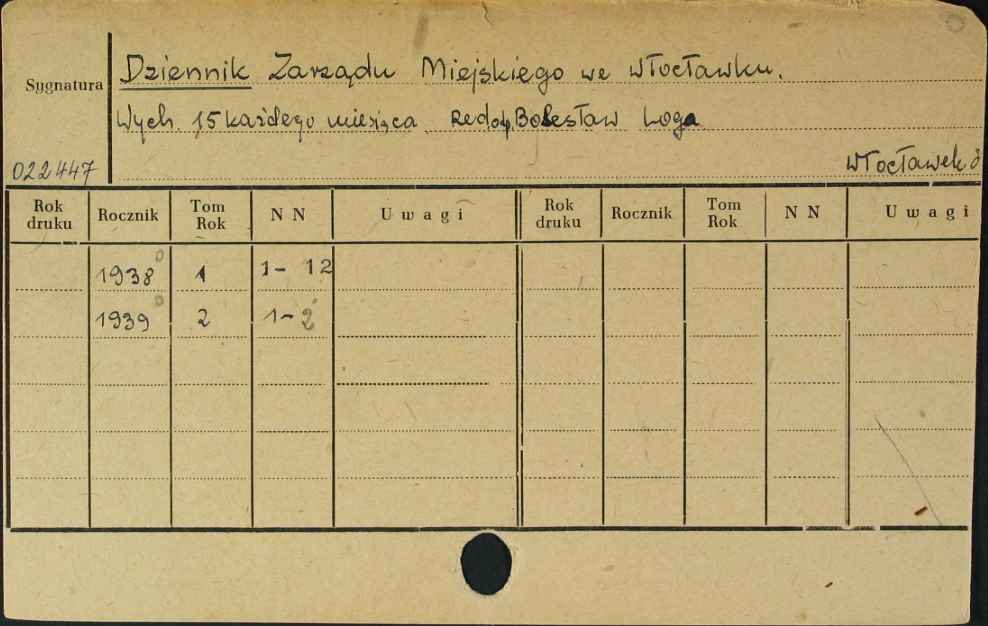 Sygnatura
Dziennik Zarządu Miejskiego we Włocławku.
Wych. 15 każdego miesiąca. Bolesław Loga
022447
Włocławek
Rok druku Rocznik Tom Rok N N Uwagi Rok druku Rocznik Tom Rok N N Uwagi
1938 1 1- 12
1939 2 1- 2